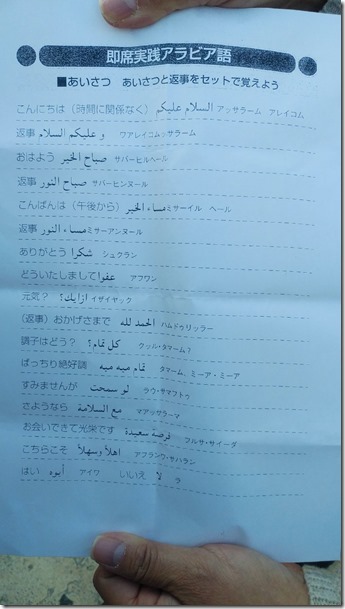 即席実践アラビア語
■あいさつ あいさつと返事をセットで覚えよう
こんにちは（時間に関係なく） السلام عليكم アッサラーム アレイコム
返事 و عليكم السلام ワアレイコムッサラーム
おはよう صباح الخير サバーヒルヘール
返事 صباح النور サバーヒンヌール
こんばんは（午後から） مساء الخير ミサーイル ヘール
返事 مساء النور ミサーアンヌール
ありがとう شكرا シュクラン
どういたしまして عفوا アフワン
元気？ ازايك؟ イザイヤック
（返事）おかげさまで الحمد لله ハムドゥリッラー
調子はどう？ كل تمام؟ クッル・タマーム？
ばっちり絶好調 تمام ميه ميه タマーム、ミーア・ミーア
すみませんが لو سمحت ラウ・サマフトゥ
さようなら مع السلامة マアッサラーマ
お会いできて光栄です فرصة سعيدة フルサ・サイーダ
こちらこそ اهلا وسهلا アフランワ・サハラン
はい أيوه アイワ いいえ لا ラ